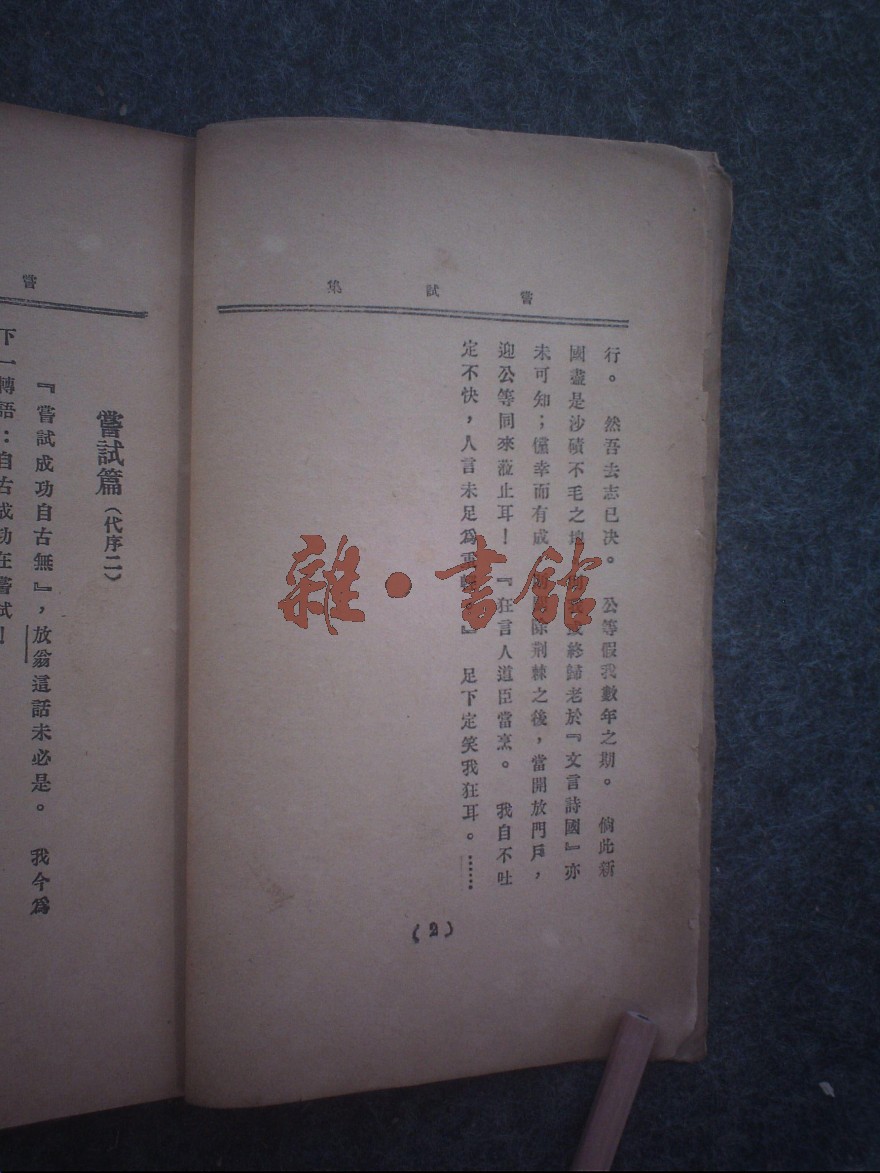 嘗試集
行。　然吾去志已决。　公等假我數年之期。　倘此新
國盡是沙磧不毛之地終歸老於『文言詩國』亦
未可知；儻幸而有成除荆棘之後，當開放門戶，
迎公等同來蒞止耳！『狂言人道臣當烹。　我自不吐
定不快，人言未足爲』　足下定笑我狂耳。……
(2)
嘗
嘗試篇(代序二)
『嘗試成功自古無』，放翁這話未必是。　我今爲
下一轉語：自古成功在嘗試！
雜・書館